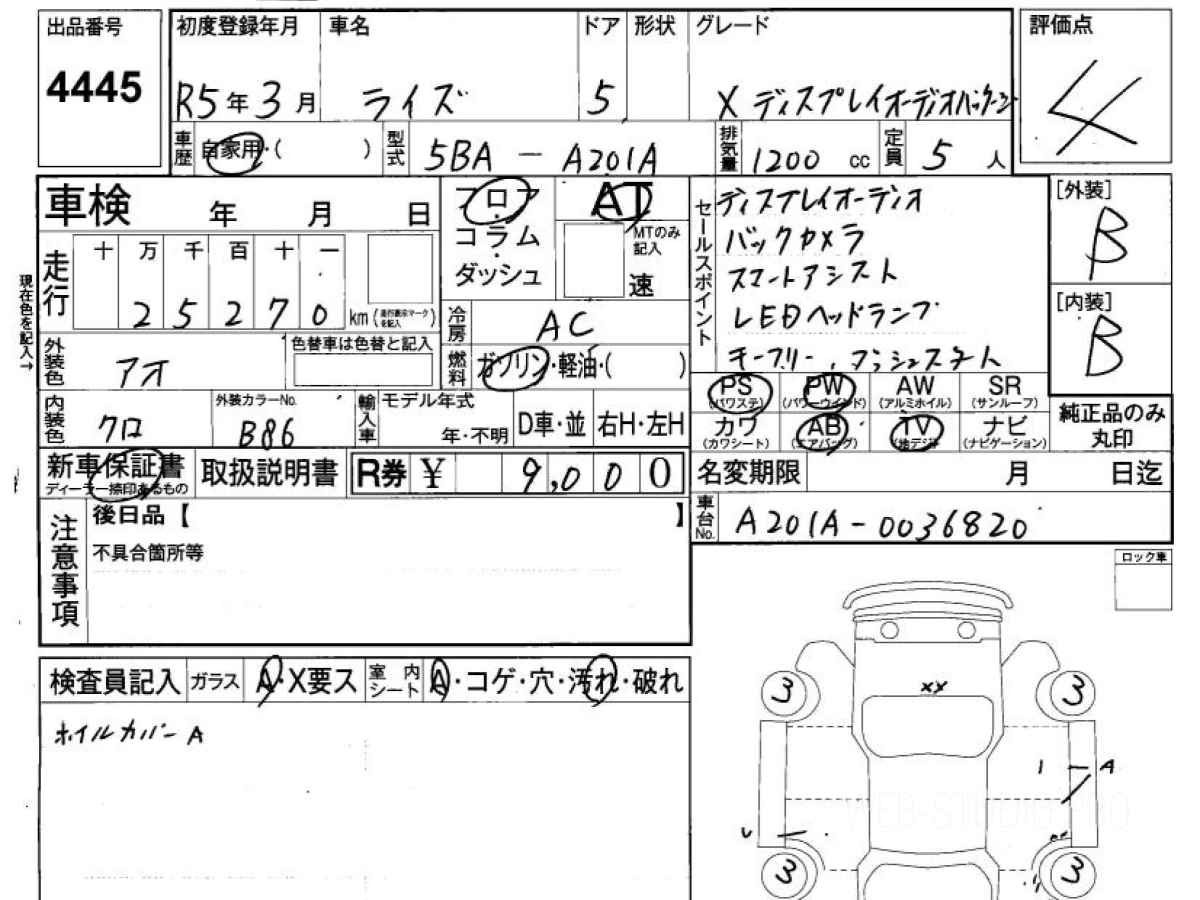 出品番号
4445
初度登録年月
R5年3月
車名
ライズ
ドア
5
形状
グレード
X ディスプレイオーディオパッケージ
評価点
4
車歴
自家用・( )
型式
5BA - A201A
排気量
1200 cc
定員
5 人
車検 年 月 日
フロア
コラム
ダッシュ
AT
MTのみ記入
速
セールスポイント
ディスプレイオーディオ
バックカメラ
スマートアシスト
LEDヘッドランプ
キーフリー、プッシュスタート
[外装]
B
[内装]
B
現在色を記入→
走行
十 万 千 百 十 一
2 5 2 7 0
km (走行表示マークを記入)
冷房
AC
外装色
アオ
色替車は色替と記入
燃料
ガソリン・軽油・( )
内装色
クロ
外装カラーNo.
B86
輸入車
モデル年式
年・不明
D車・並
右H・左H
PS
(パワステ)
PW
(パワーウインド)
AW
(アルミホイル)
SR
(サンルーフ)
カワ
(カワシート)
AB
(エアバッグ)
TV
(地デジ)
ナビ
(ナビゲーション)
純正品のみ
丸印
新車保証書
ディーラー捺印あるもの
取扱説明書
R券 ¥ 9,000
名変期限 月 日迄
車台No.
A201A-0036820
注意事項
後日品【 】
不具合箇所等
ロック車
検査員記入
ガラス
A・X要ス
室内シート
A・コゲ・穴・汚れ・破れ
ホイルカバー A
XX
3
3
1
A
U
3
3
WEB-STUDIO.PRO